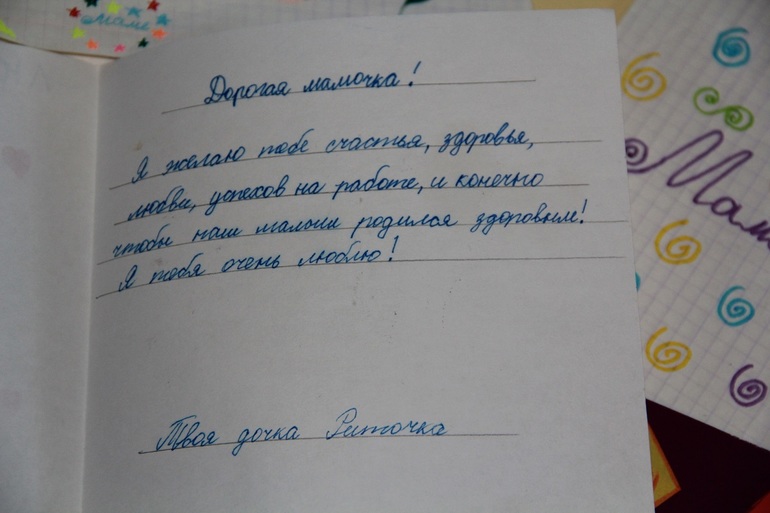 маме
Дорогая мамочка!
Я желаю тебе счастья, здоровья,
любви, успехов на работе, и конечно
чтобы наш малыш родился здоровым!
Я тебя очень люблю!
Твоя дочка Риточка
Мам